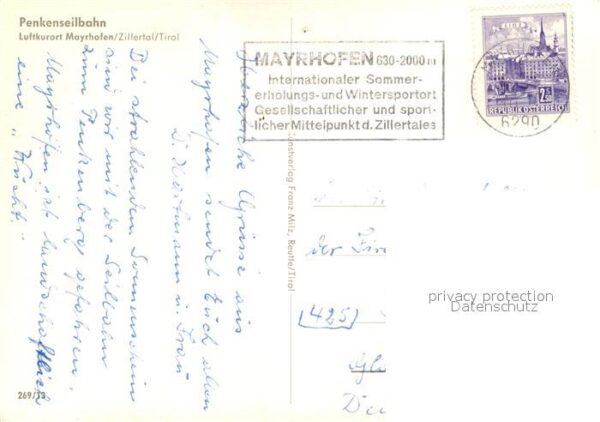 Penkenseilbahn
Luftkurort Mayrhofen/Zillertal/Tirol
MAYRHOFEN 630-2000 m
Internationaler Sommer-
erholungs- und Wintersportort
Gesellschaftlicher und sport-
licher Mittelpunkt d. Zillertales
LINZ
2.50
REPUBLIK ÖSTERREICH
6290
Herzliche Grüsse aus
Mayrhofen sendet Euch allen
D. Hartmann u. Frau
Bei strahlendem Sonnenschein
sind wir mit der Seilbahn
zum Penkenberg gefahren.
Mayrhofen ist landschaftlich
eine "Wucht".
Kunstverlag Franz Milz, Reutte/Tirol
der Fir
425
Gl
privacy protection
Datenschutz
269/13